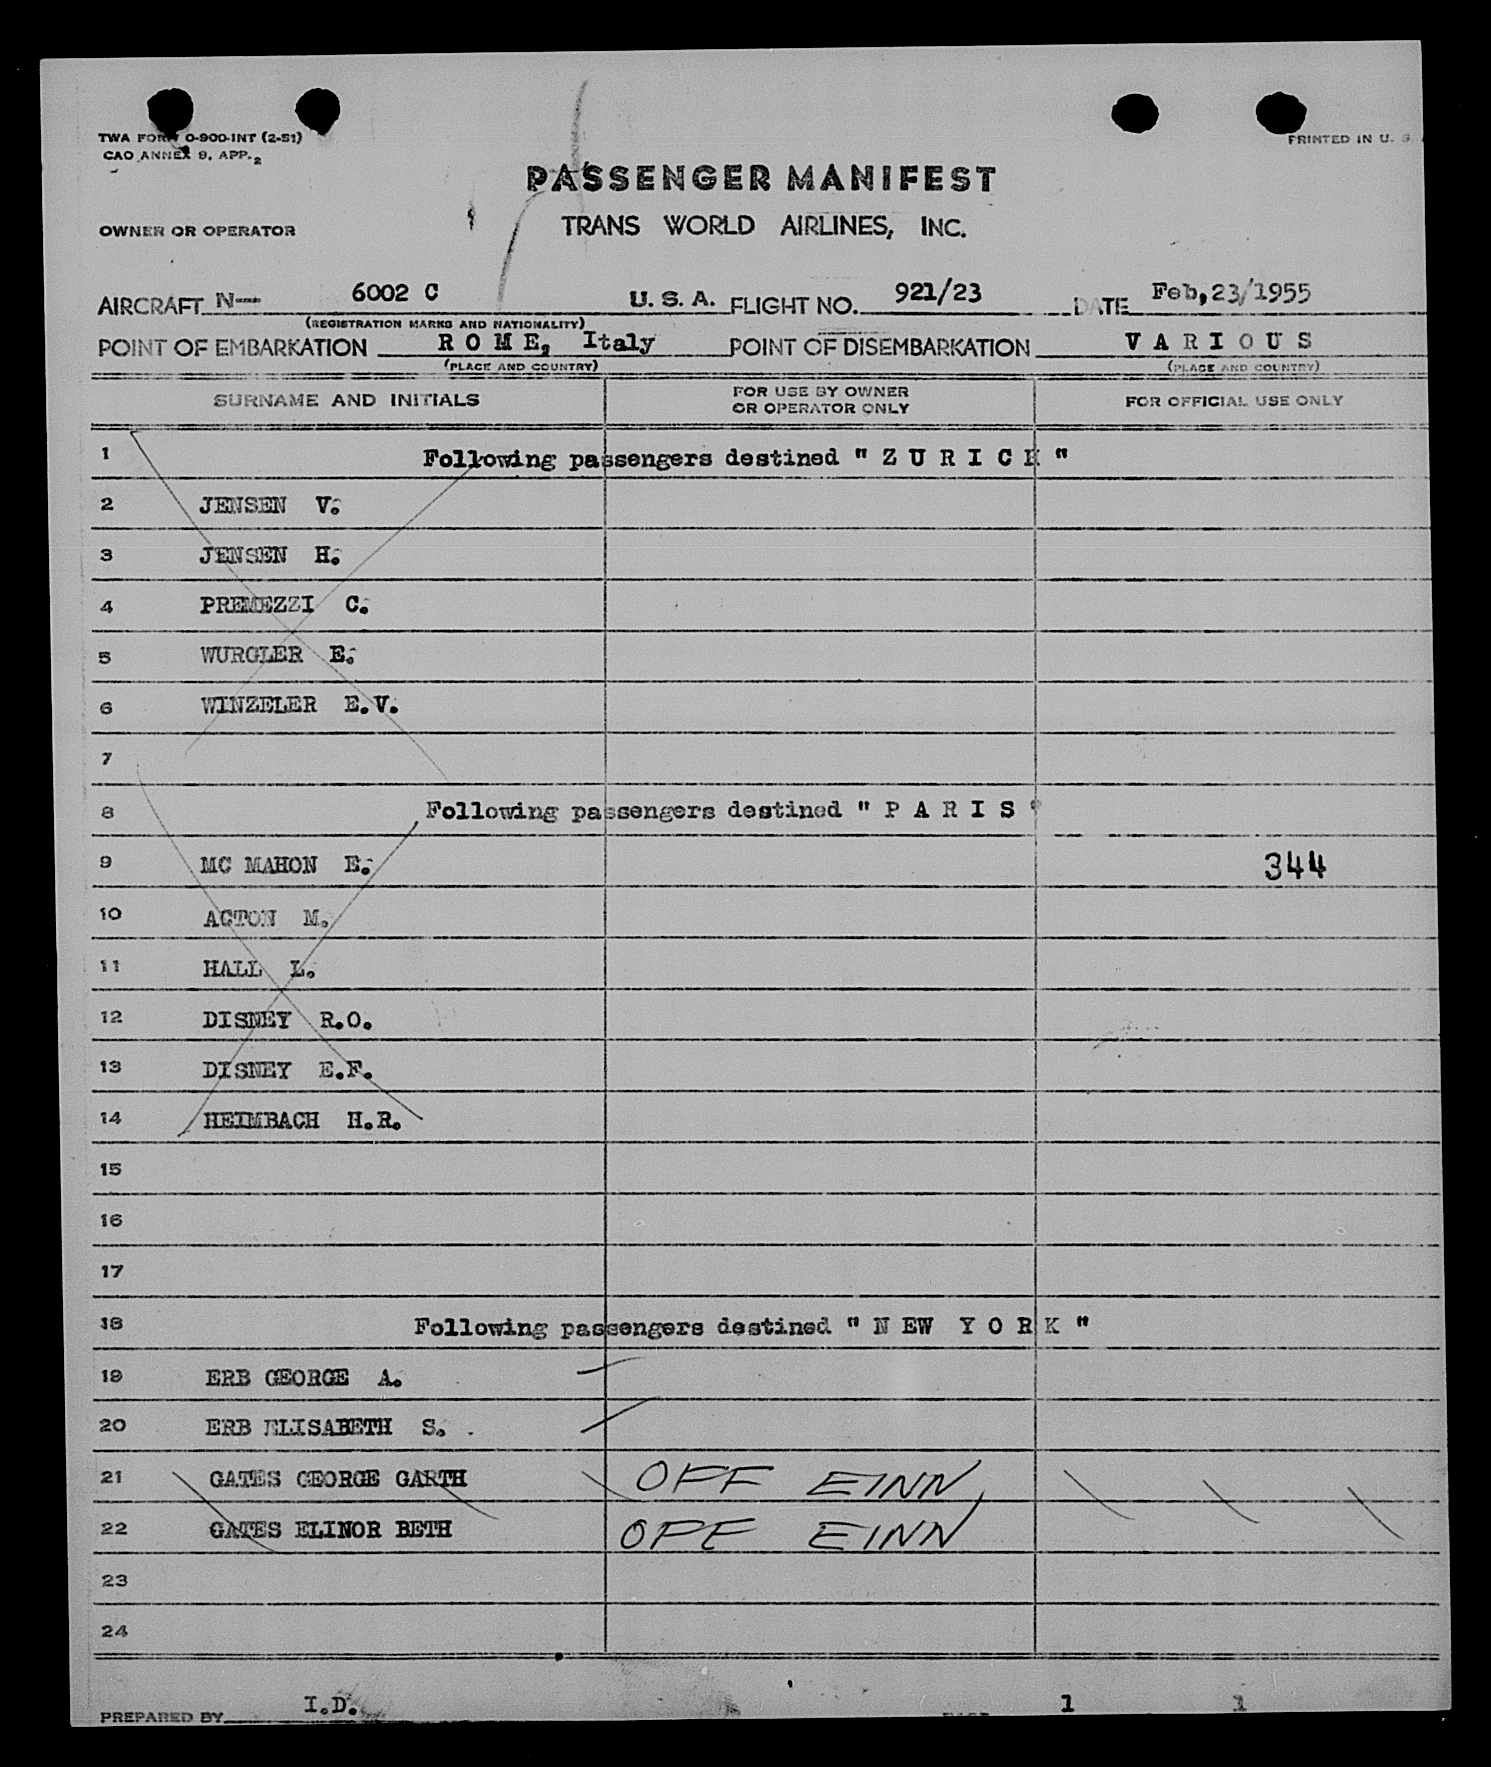 TWA FORM O-900-INT (2-51)
CAO ANNEX 9, APP. 2
PRINTED IN U. S.
PASSENGER MANIFEST
OWNER OR OPERATOR
TRANS WORLD AIRLINES, INC.
AIRCRAFT N-- 6002 C U. S. A. FLIGHT NO. 921/23 DATE Feb,23/1955
(REGISTRATION MARKS AND NATIONALITY)
POINT OF EMBARKATION R O M E, Italy POINT OF DISEMBARKATION V A R I O U S
(PLACE AND COUNTRY) (PLACE AND COUNTRY)
SURNAME AND INITIALS FOR USE BY OWNER OR OPERATOR ONLY FOR OFFICIAL USE ONLY
1 Following passengers destined " Z U R I C H "
2 JENSEN V.
3 JENSEN H.
4 PREMEZZI C.
5 WURGLER E.
6 WINZELER E.V.
7
8 Following passengers destined " P A R I S "
9 MC MAHON E. 344
10 ACTON M.
11 HALL L.
12 DISNEY R.O.
13 DISNEY E.F.
14 HEIMBACH H.R.
15
16
17
18 Following passengers destined " N EW Y O R K "
19 ERB GEORGE A.
20 ERB ELISABETH S. .
21 GATES GEORGE GARTH OFF EINN
22 GATES ELINOR BETH OFF EINN
23
24
PREPARED BY I.D. 1 1